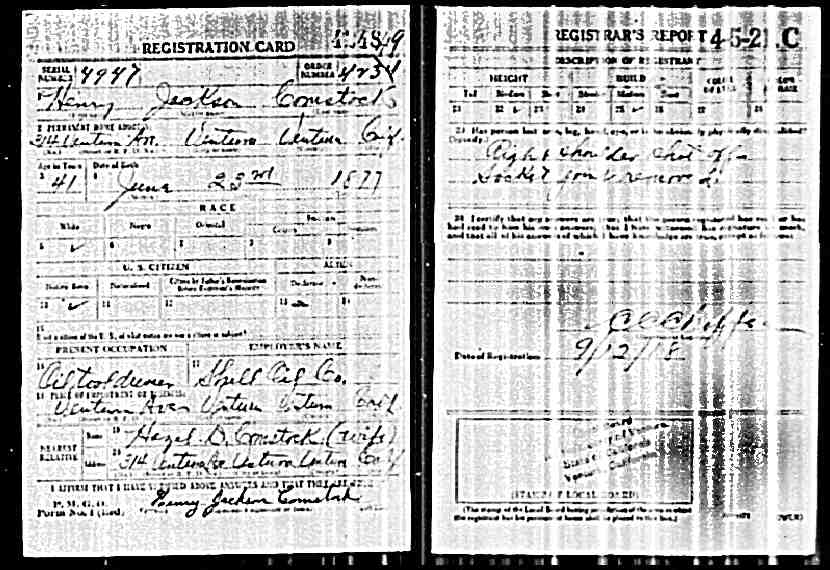 REGISTRATION CARD
SERIAL NUMBER 4947 ORDER NUMBER
Henry Jackson Comstock
2 PERMANENT HOME ADDRESS
314 Ventura Av. Ventura Ventura Calif
Age in Years Date of Birth
41 June 23rd 1877
RACE
White Negro Oriental Indian
5 ✓ 6 7 8 9
U. S. CITIZEN ALIEN
Native Born Naturalized Citizen by Father's Naturalization Before Registrant's Majority
10 ✓ 11 12 13
15
PRESENT OCCUPATION EMPLOYER'S NAME
Oil tool dresser Shell Oil Co.
Ventura Ave Ventura Ventura Calif
NEAREST RELATIVE Name Hazel D. Comstock (wife)
Address 314 Ventura Av Ventura Ventura Calif
I AFFIRM THAT I HAVE VERIFIED ABOVE ANSWERS AND THAT THEY ARE TRUE
P. M. G. O.
Form No. 1 (Red) Henry Jackson Comstock
REGISTRAR'S REPORT 4-5-21 C
DESCRIPTION OF REGISTRANT
HEIGHT BUILD COLOR OF EYES COLOR OF HAIR
Tall Medium Short Slender Medium Stout
21 22 ✓ 23 24 25 ✓ 26 27 28
29 Has person lost arm, leg, hand, eye, or is he obviously physically disqualified?
(Specify.)
Right shoulder shot off
Socket joint removed.
30 I certify that my answers are true; that the person registered has read or has
had read to him his own answers; that I have witnessed his signature or mark,
and that all of his answers of which I have knowledge are true, except as follows:
Date of Registration 9/12/18
State of California
(STAMP OF LOCAL BOARD)
(The stamp of the Local Board having jurisdiction of the area in which
the registrant has his permanent home shall be placed in this box.)
(OVER)